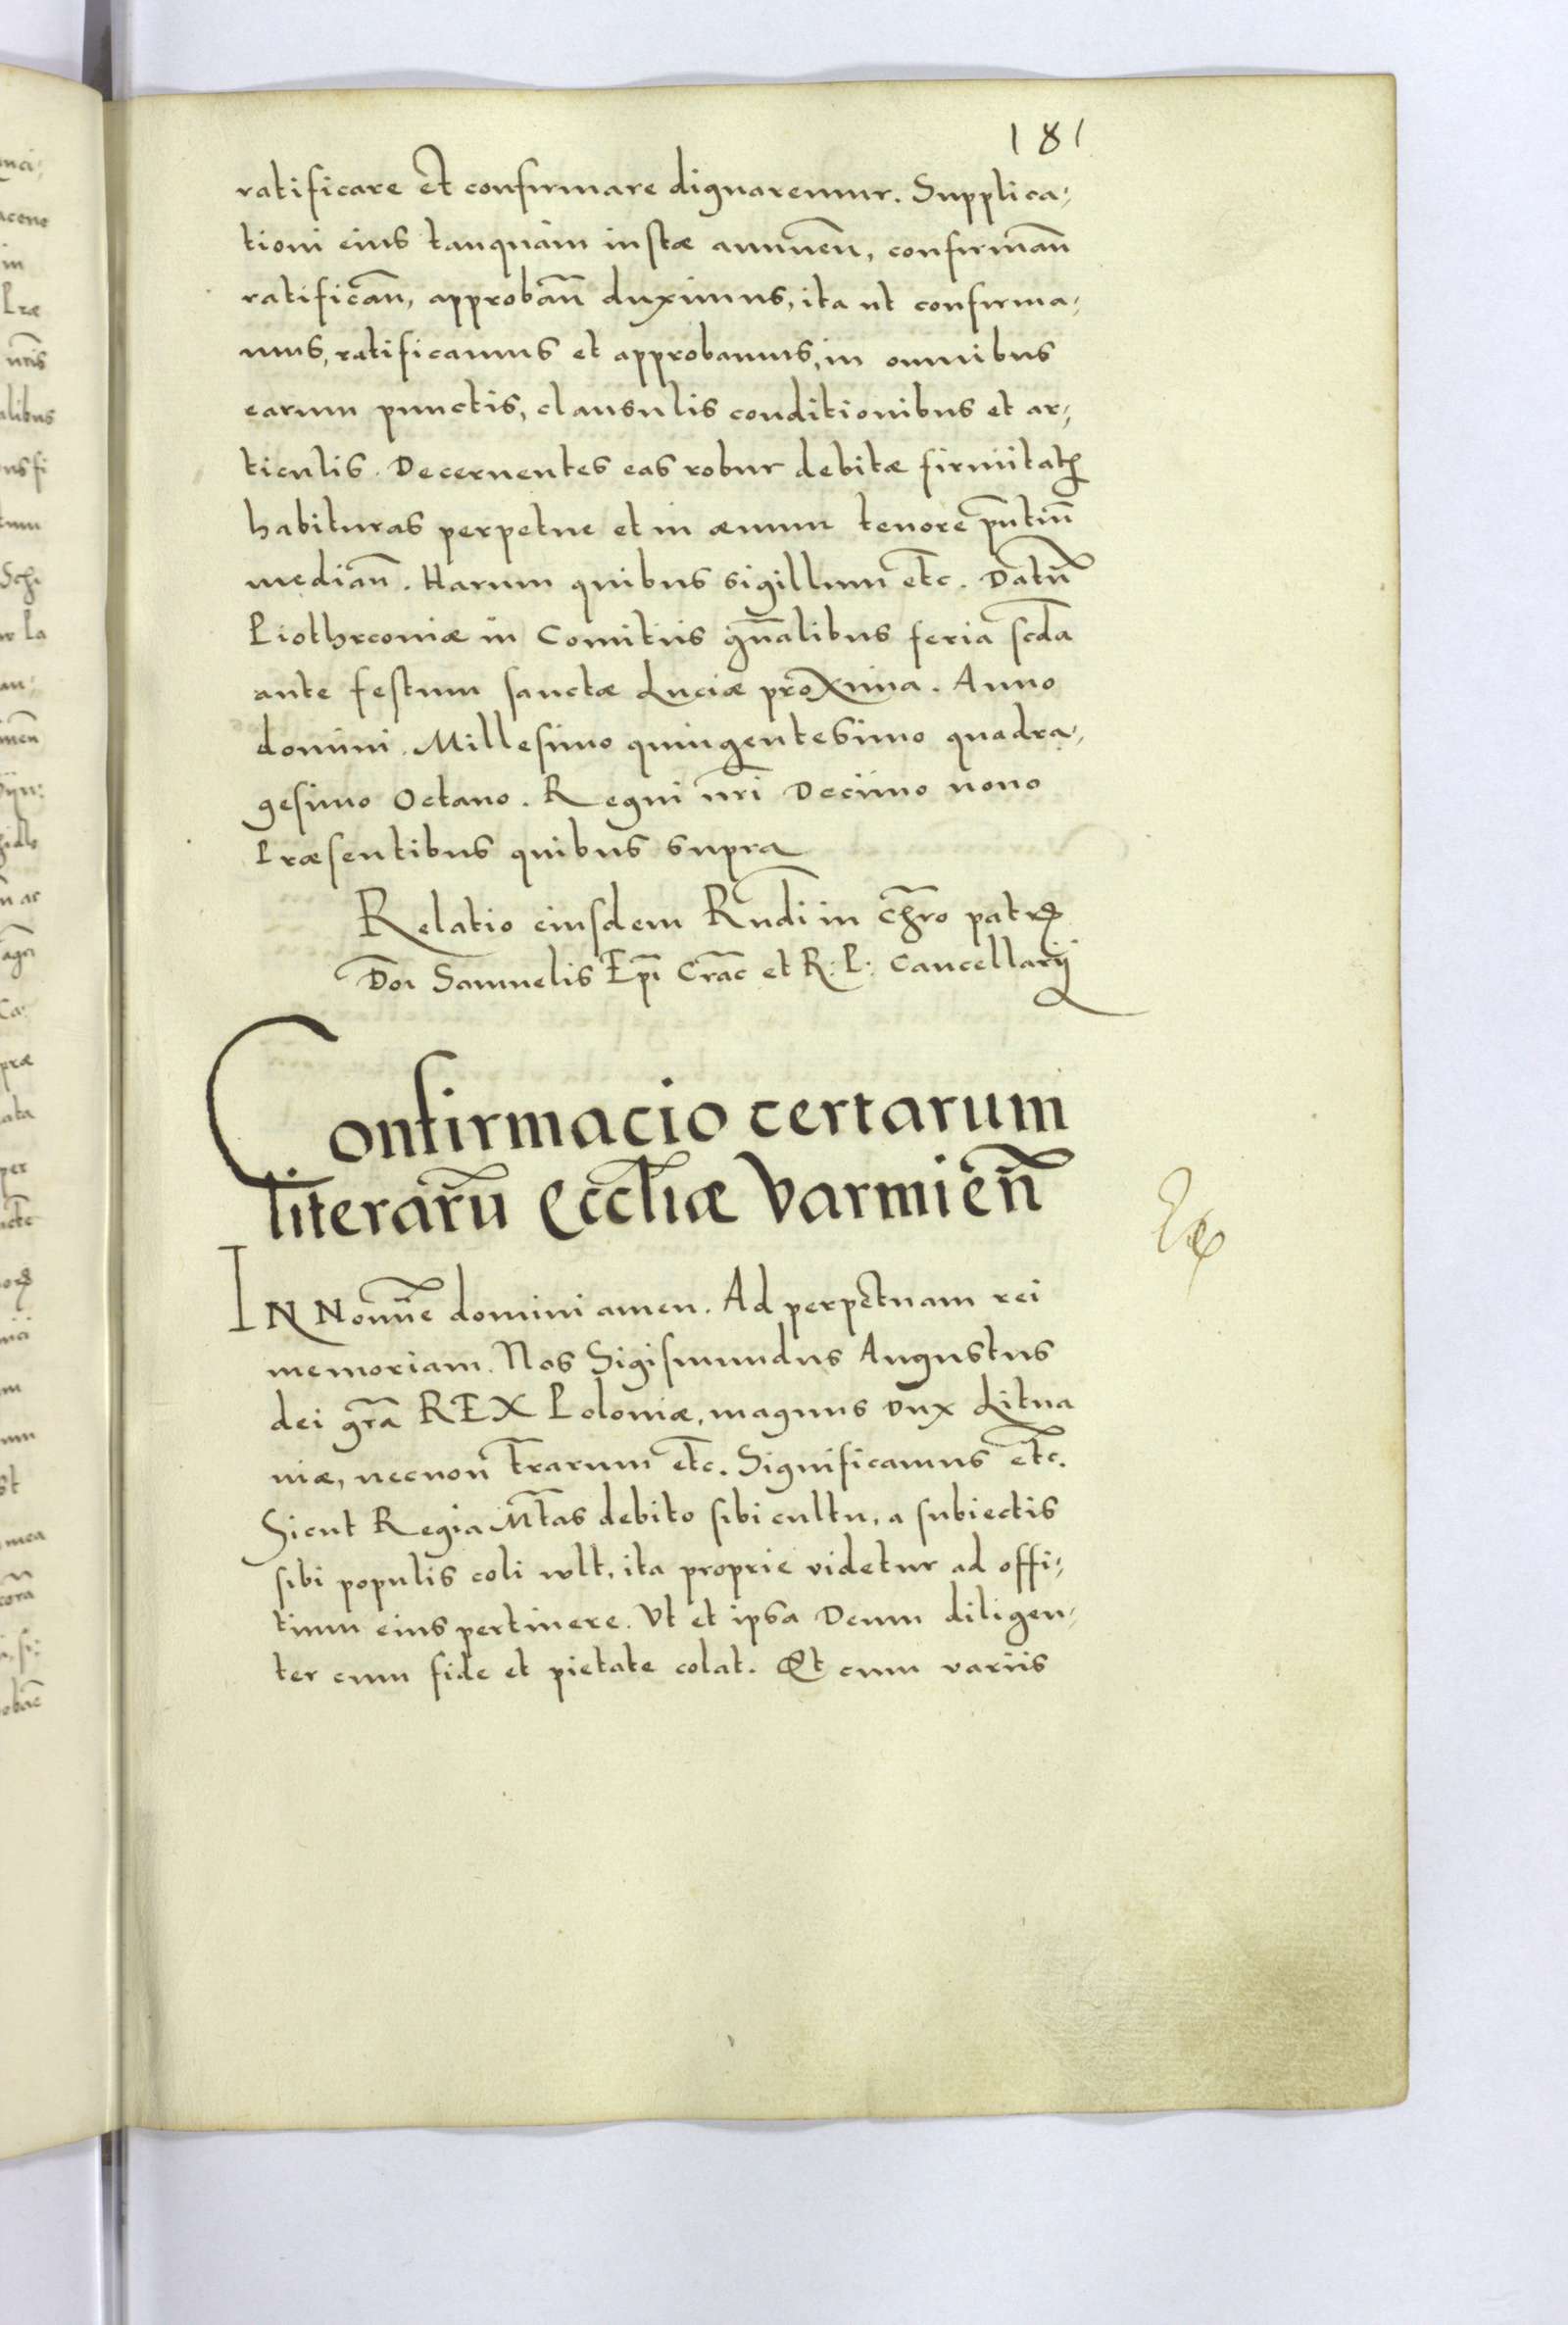 181
ratificare et confirmare dignaremur. Supplica-
tioni eius tanquam iustæ annuen̄, confirman̄
ratifican̄, approban̄ duximus, ita ut confirma-
mus, ratificamus et approbamus, in omnibus
earum punctis, clausulis conditionibus et ar-
ticulis. Decernentes eas robur debitæ firmitatꝭ
habituras perpetue et in æuum tenore pn̄tiū
median̄. Harum quibus sigillum etc. Datū
Piothrconiæ in Comitiis gn̄alibus feria scd̄a
ante festum sanctæ Luciæ proxima. Anno
domini. Millesimo quingentesimo quadra-
gesimo Octauo. Regni nr̄i Decimo nono
Præsentibus quibus supra
Relatio eiusdem Rn̄di in Chr̄o patrꝭ
Dn̄i Samuelis Ep̄i Crac̄ et R: P: Cancellarij
Confirmacio certarum
literarū Eccl̄iæ Varmien̄
IN Nomīe domini amen. Ad perpetuam rei
memoriam. Nos Sigismundus Augustus
dei gr̄a REX Poloniæ, magnus Dux Litua
niæ, necnon Tr̄arum etc. Significamus etc.
Sicut Regia Mt̄as debito sibi cultu, a subiectis
sibi populis coli wlt, ita proprie videtur ad offi-
tium eius pertinere. Vt et ipsa Deum diligen-
ter cum fide et pietate colat. Et cum variis